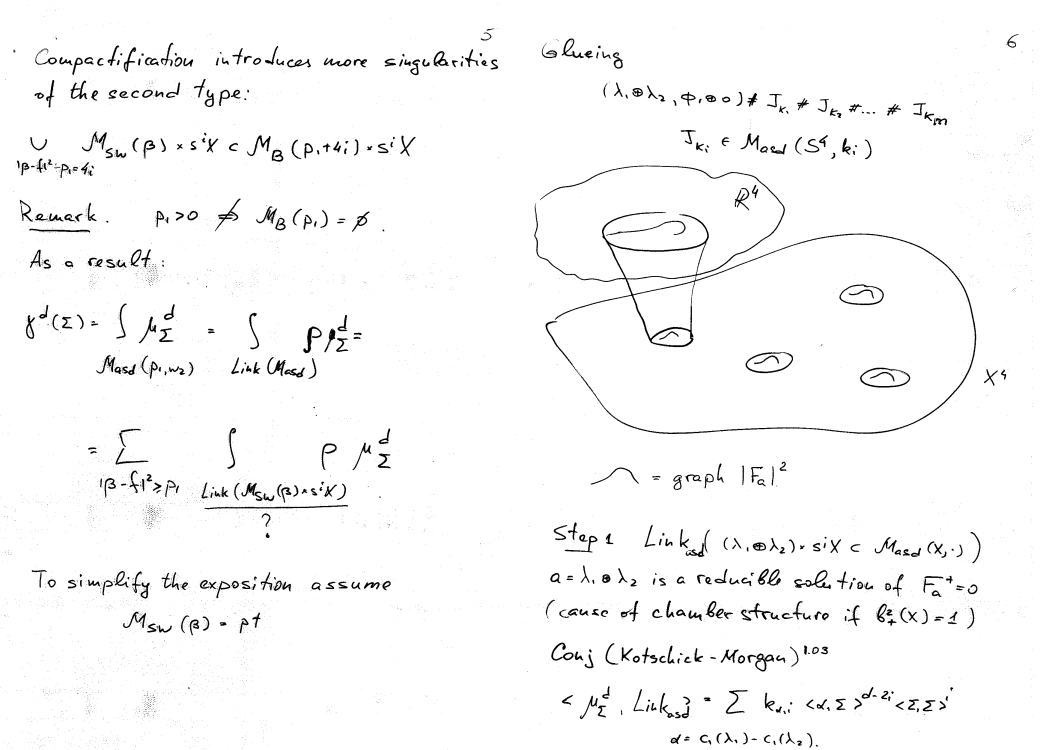 5
Compactification introduces more singularities
of the second type:
∪ M_SW(β) × s^i X ⊂ M_B(p₁+4i) × s^i X
|β-f|²-p₁=4i
Remark. p₁>0 ⇏ M_B(p₁) = ∅.
As a result:
γ^d(Σ) = ∫ μ_Σ^d = ∫ ρ μ_Σ^d =
M_asd(p₁,w₂) Link(M_asd)
= Σ ∫ ρ μ_Σ^d
|β-f|²≥p₁ Link(M_SW(β)×s^i X)
?
To simplify the exposition assume
M_SW(β) = pt
6
Glueing
(λ₁⊕λ₂, φ₁⊕0) # J_K₁ # J_K₂ # ... # J_Km
J_Ki ∈ M_asd(S⁴, k_i)
R⁴
X⁴
= graph |F_a|²
Step 1 Link_asd((λ₁⊕λ₂)×s^i X ⊂ M_asd(X,·))
a = λ₁⊕λ₂ is a reducible solution of F_a^+=0
(cause of chamber structure if b_+^2(X)=1)
Conj (Kotschick-Morgan)^1.03
<μ_Σ^d, Link_asd> = Σ k_α,i <α,Σ>^{d-2i} <Σ,Σ>^i
α = c₁(λ₁)-c₁(λ₂).